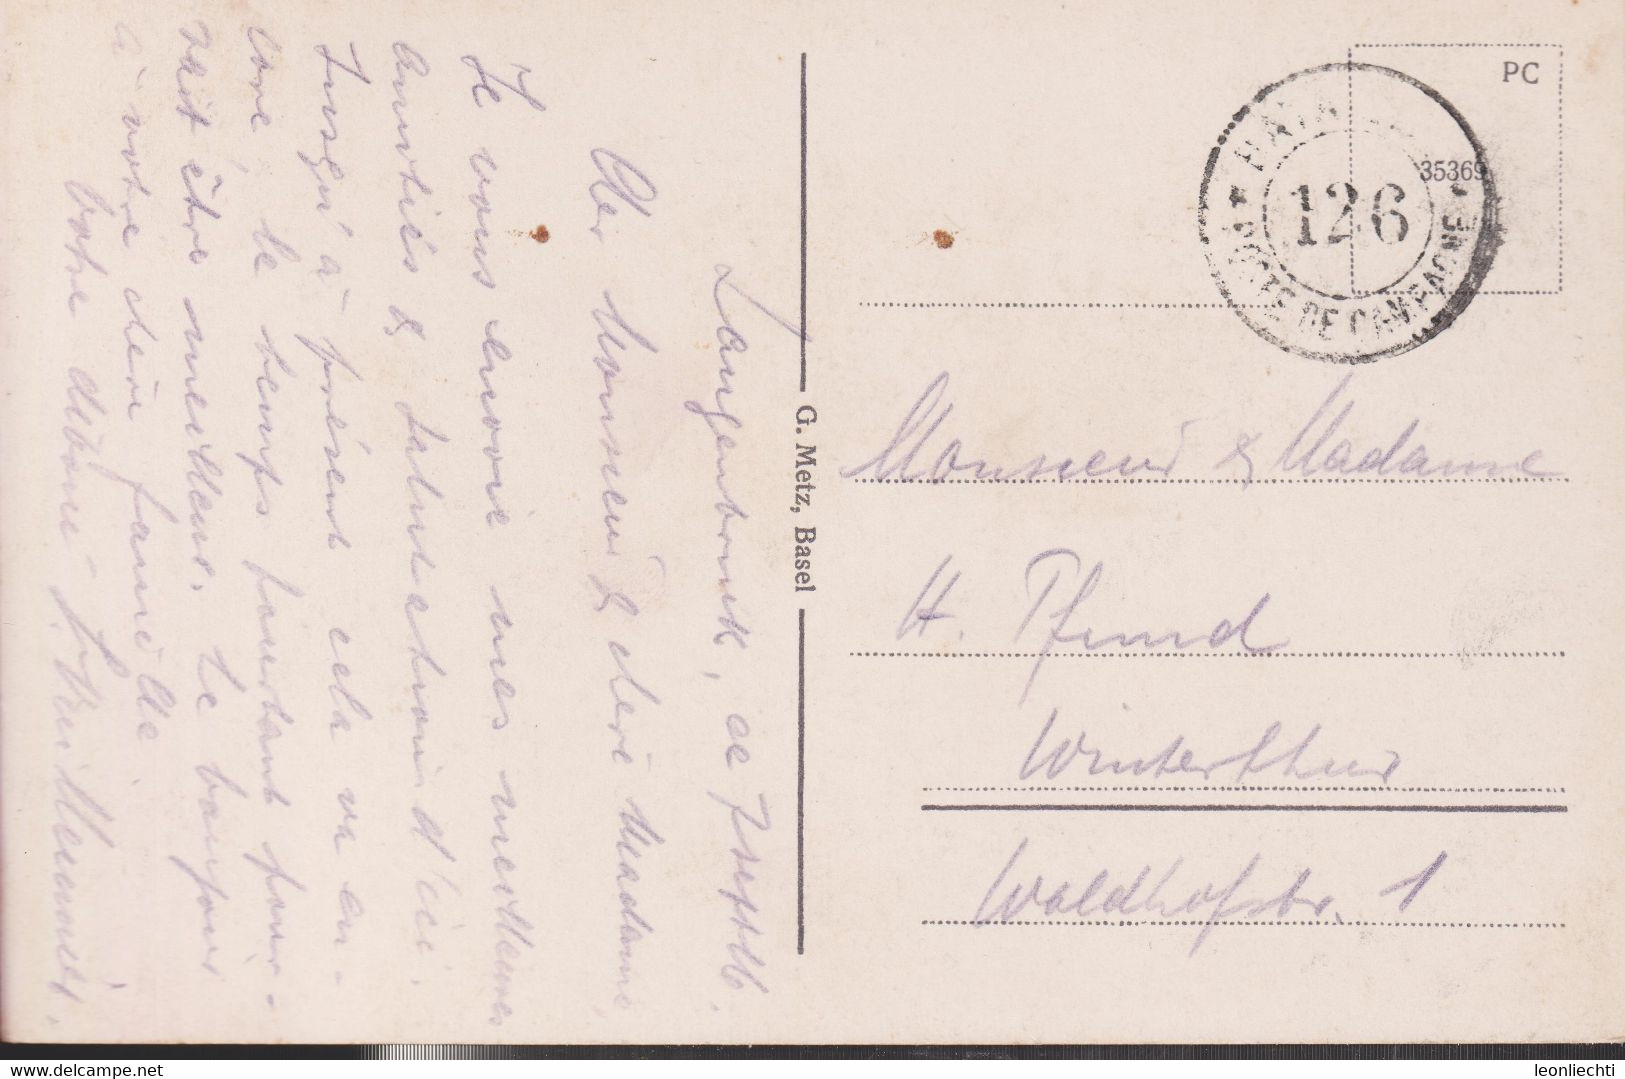 Langenbruck, ce
Cher Monsieur & chère Madame
Je vous envoie mes meilleures
amitiés & salutations d'ici.
Jusqu'à présent cela va en-
core, le temps pourtant pour-
rait être meilleur. Le bonjour
à votre chère famille.
Votre dévoué
G. Metz, Basel
PC
35369
126
POSTE DE CAMPAGNE
Monsieur & Madame
H. Pfund
Winterthur
Waldhofstr. 1
delcampe.net
leonliechti